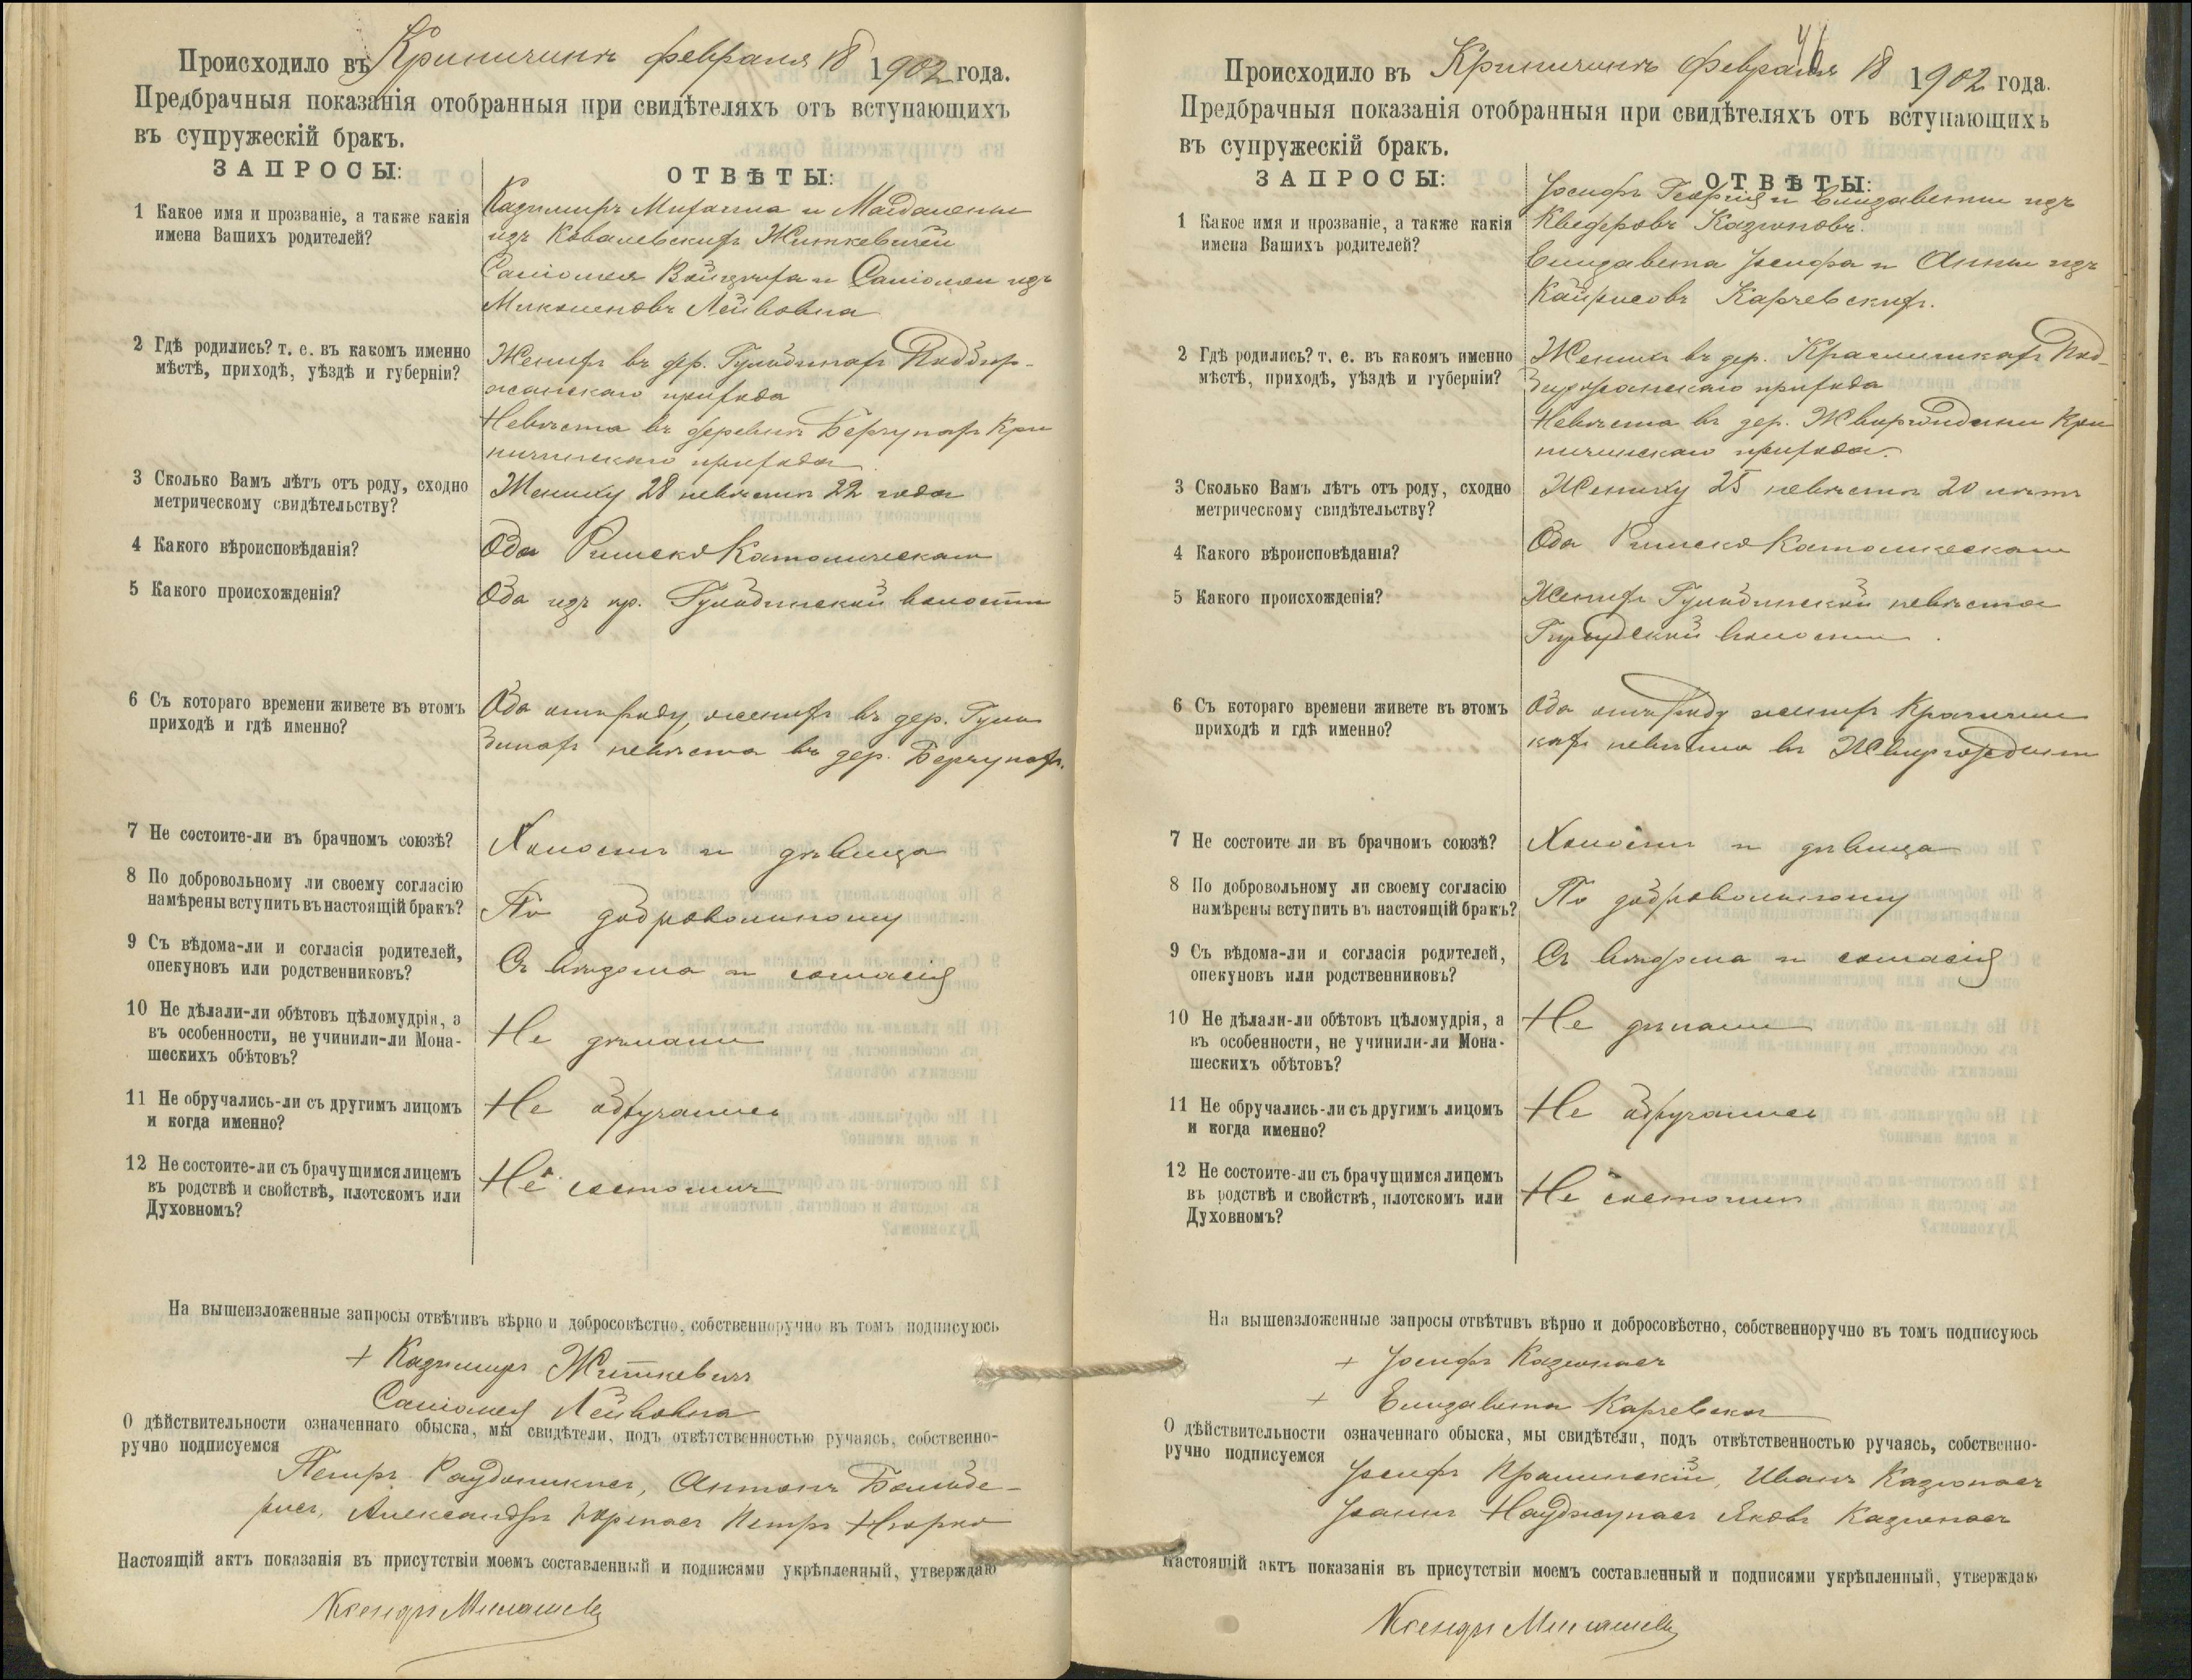 Происходило въ Криничинѣ февраля 18 1902 года.
Предбрачныя показанія отобранныя при свидѣтеляхъ отъ вступающихъ
въ супружескій бракъ.
ЗАПРОСЫ:
ОТВѢТЫ:
1 Какое имя и прозваніе, а также какія
имена Вашихъ родителей?
Казимиръ Михаила и Магдалены
изъ Ковалевскихъ Житкевичей
Саломея и Саломеи изъ
Лейвовна
2 Гдѣ родились? т. е. въ какомъ именно
мѣстѣ, приходѣ, уѣздѣ и губерніи?
Женихъ въ дер.
прихода
Невѣста въ деревнѣ Берчунахъ Кри
ничинскаго прихода
3 Сколько Вамъ лѣтъ отъ роду, сходно
метрическому свидѣтельству?
Жениху 28 невѣстѣ 22 года
4 Какого вѣроисповѣданія?
Оба Римско Католическаго
5 Какого происхожденія?
Оба изъ кр. волости
6 Съ котораго времени живете въ этомъ
приходѣ и гдѣ именно?
Оба отъ роду, женихъ въ дер.
невѣста въ дер. Берчунахъ.
7 Не состоите-ли въ брачномъ союзѣ?
Холостъ и дѣвица
8 По добровольному ли своему согласію
намѣрены вступить въ настоящій бракъ?
По добровольному
9 Съ вѣдома-ли и согласія родителей,
опекуновъ или родственниковъ?
Съ вѣдома и согласія
10 Не дѣлали-ли обѣтовъ цѣломудрія, а
въ особенности, не учинили-ли Мона-
шескихъ обѣтовъ?
Не дѣлали
11 Не обручались-ли съ другимъ лицомъ
и когда именно?
Не обручались
12 Не состоите-ли съ брачущимся лицемъ
въ родствѣ и свойствѣ, плотскомъ или
Духовномъ?
Не состоимъ
На вышеизложенные запросы отвѣтивъ вѣрно и добросовѣстно, собственноручно въ томъ подписуюсь
+ Казимиръ Житкевичъ
Саломея Лейвовна
О дѣйствительности означеннаго обыска, мы свидѣтели, подъ отвѣтственностью ручаясь, собственно-
ручно подписуемся
Петръ Антонъ
Александръ Петръ
Настоящій актъ показанія въ присутствіи моемъ составленный и подписями укрѣпленный, утверждаю
Ксендзъ
46
Происходило въ Криничинѣ февраля 18 1902 года.
Предбрачныя показанія отобранныя при свидѣтеляхъ отъ вступающихъ
въ супружескій бракъ.
ЗАПРОСЫ:
ОТВѢТЫ:
1 Какое имя и прозваніе, а также какія
имена Вашихъ родителей?
Іосифъ Георгія и Елизаветы изъ
Кведеровъ Казюновъ.
Елизавета Іосифа и Анны изъ
Кайрисовъ Карчевскихъ.
2 Гдѣ родились? т. е. въ какомъ именно
мѣстѣ, приходѣ, уѣздѣ и губерніи?
Женихъ въ дер.
прихода
Невѣста въ дер. Кри
ничинскаго прихода.
3 Сколько Вамъ лѣтъ отъ роду, сходно
метрическому свидѣтельству?
Жениху 25 невѣстѣ 20 лѣтъ
4 Какого вѣроисповѣданія?
Оба Римско Католическаго
5 Какого происхожденія?
Женихъ невѣста
волости.
6 Съ котораго времени живете въ этомъ
приходѣ и гдѣ именно?
Оба отъ роду женихъ
невѣста въ
7 Не состоите ли въ брачномъ союзѣ?
Холостъ и дѣвица
8 По добровольному ли своему согласію
намѣрены вступить въ настоящій бракъ?
По добровольному
9 Съ вѣдома-ли и согласія родителей,
опекуновъ или родственниковъ?
Съ вѣдома и согласія
10 Не дѣлали-ли обѣтовъ цѣломудрія, а
въ особенности, не учинили-ли Мона-
шескихъ обѣтовъ?
Не дѣлали
11 Не обручались-ли съ другимъ лицомъ
и когда именно?
Не обручались
12 Не состоите-ли съ брачущимся лицемъ
въ родствѣ и свойствѣ, плотскомъ или
Духовномъ?
Не состоимъ
На вышеизложенные запросы отвѣтивъ вѣрно и добросовѣстно, собственноручно въ томъ подписуюсь
+ Іосифъ Казюнасъ
+ Елизавета Карчевска
О дѣйствительности означеннаго обыска, мы свидѣтели, подъ отвѣтственностью ручаясь, собственно-
ручно подписуемся
Іосифъ Иванъ Казюнасъ
Яковъ Казюнасъ
Настоящій актъ показанія въ присутствіи моемъ составленный и подписями укрѣпленный, утверждаю
Ксендзъ